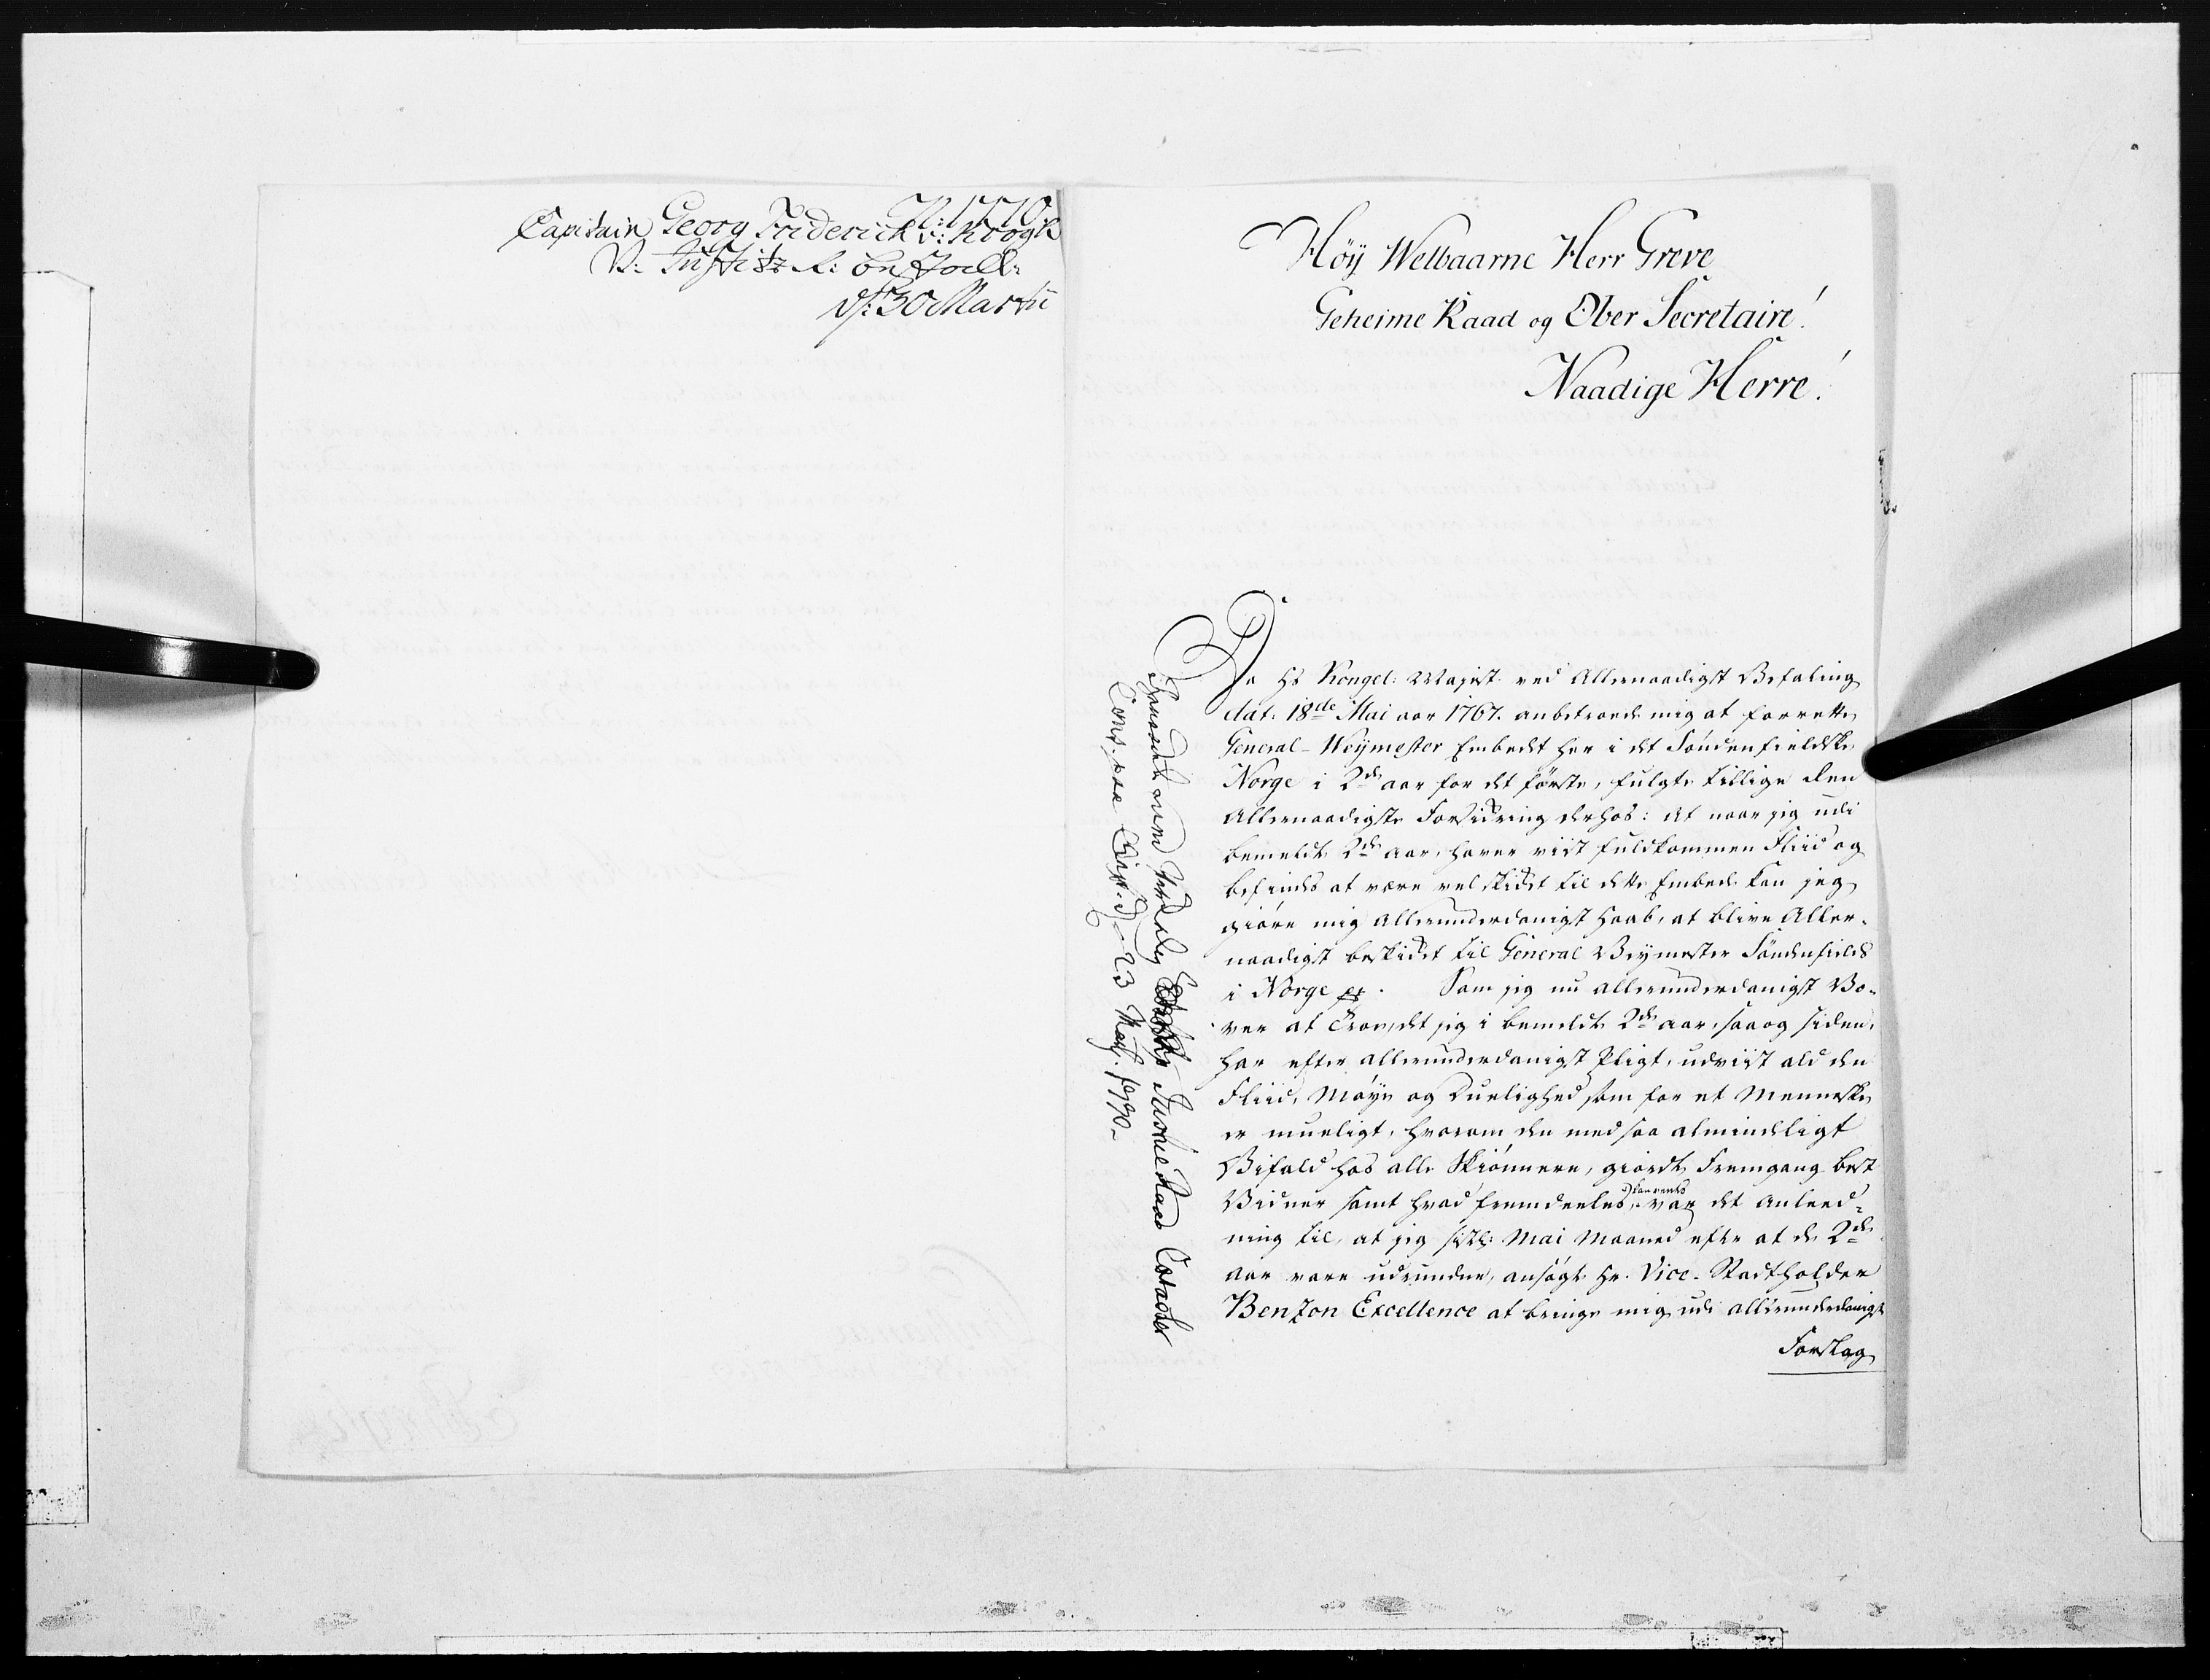 N: 1770
Capitain Georg Friderich v: Krogh
V: Justitz R: bestall:
d: 30 Martii
Høÿ Welbaarne Herr Greve
Geheime Raad og Ober Secretaire!
Naadige Herre!
Da Hs Kongel: Majest. ved Allernaadigst Befaling
dat. 18de Mai aar 1767. anbetroede mig at forrette
General-Weÿmester Embedet her i det Søndenfieldske
Norge i 2de aar for det første, fulgte tillige den
Allernaadigste Forsickring derhos: At naar jeg udi
bemeldte 2de aar, haver viist fuldkommen Fliid og
befindes at være vel skicket til dette Embede kan jeg
giøre mig allerunderdanigst Haab, at blive Aller-
naadigst beskicket til General Veÿmester Søndenfields
i Norge p. Som jeg nu allerunderdanigst Vo-
ver at Troe, det jeg i bemeldte 2de aar, saa og siden,
har efter allerunderdanigst Pligt, udviist ald den
Fliid, Møÿe og Duelighed som for et Menneske
er mueligt, hvorom den med saa almindeligt
Bifald hos alle Skiønnere, giorde Fremgang best
Vidner samt hvad fremdeeles var det Anleed-
ning til, at jeg sidstl: Mai Maaned efter at de 2de
Aar vare udrundne, ansøgte Hr. Vice-Stadtholder
Benzon Excellence at bringe mig udi allerunderdanigst
Forslag
Justice Raads Caracter
23 Mart. 1770